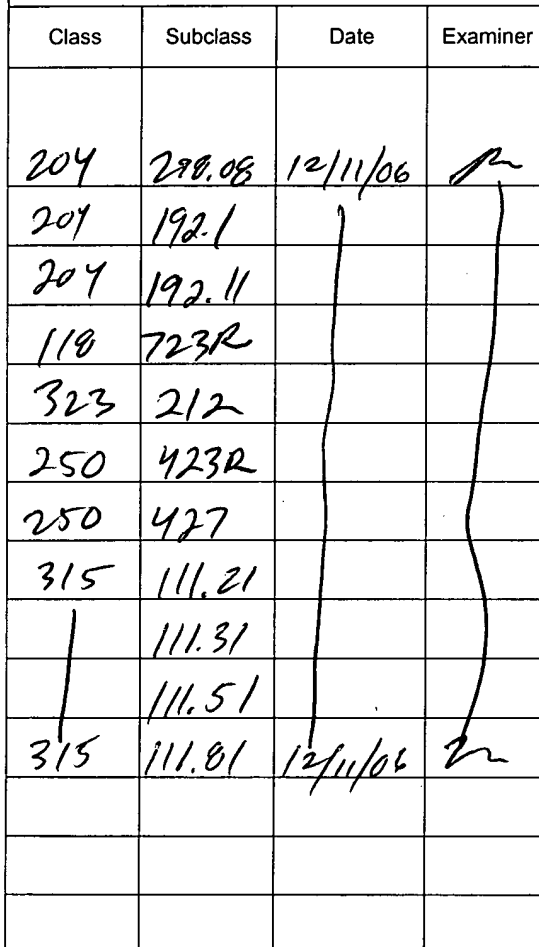 Class Subclass Date Examiner
204 298.08 12/11/06
204 192.1
204 192.11
118 723R
323 212
250 423R
250 427
315 111.21
111.31
111.51
315 111.81 12/11/06